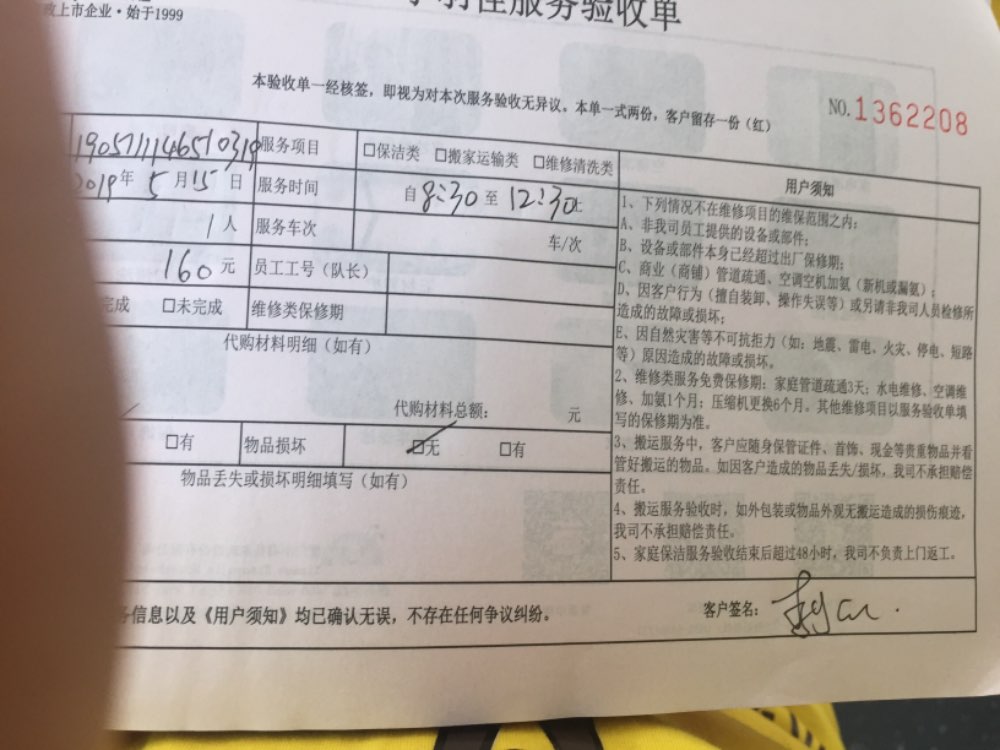 政上市企业·始于1999
性服务验收单
本验收单一经核签，即视为对本次服务验收无异议。本单一式两份，客户留存一份（红）
NO.1362208
服务项目 □保洁类 □搬家运输类 □维修清洗类
2019年5月15日 服务时间 自8:30至12:30止
1人 服务车次 车/次
160元 员工工号（队长）
完成 □未完成 维修类保修期
代购材料明细（如有）
代购材料总额： 元
□有 物品损坏 ☑无 □有
物品丢失或损坏明细填写（如有）
用户须知
1、下列情况不在维修项目的维保范围之内：
A、非我司员工提供的设备或部件；
B、设备或部件本身已经超过出厂保修期；
C、商业（商铺）管道疏通、空调空机加氨（新机或漏氨）；
D、因客户行为（擅自装卸、操作失误等）或另请非我司人员检修所
造成的故障或损坏；
E、因自然灾害等不可抗拒力（如：地震、雷电、火灾、停电、短路
等）原因造成的故障或损坏。
2、维修类服务免费保修期：家庭管道疏通3天；水电维修、空调维
修、加氨1个月；压缩机更换6个月。其他维修项目以服务验收单填
写的保修期为准。
3、搬运服务中，客户应随身保管证件、首饰、现金等贵重物品并看
管好搬运的物品。如因客户造成的物品丢失/损坏，我司不承担赔偿
责任。
4、搬运服务验收时，如外包装或物品外观无搬运造成的损伤痕迹，
我司不承担赔偿责任。
5、家庭保洁服务验收结束后超过48小时，我司不负责上门返工。
务信息以及《用户须知》均已确认无误，不存在任何争议纠纷。
客户签名：